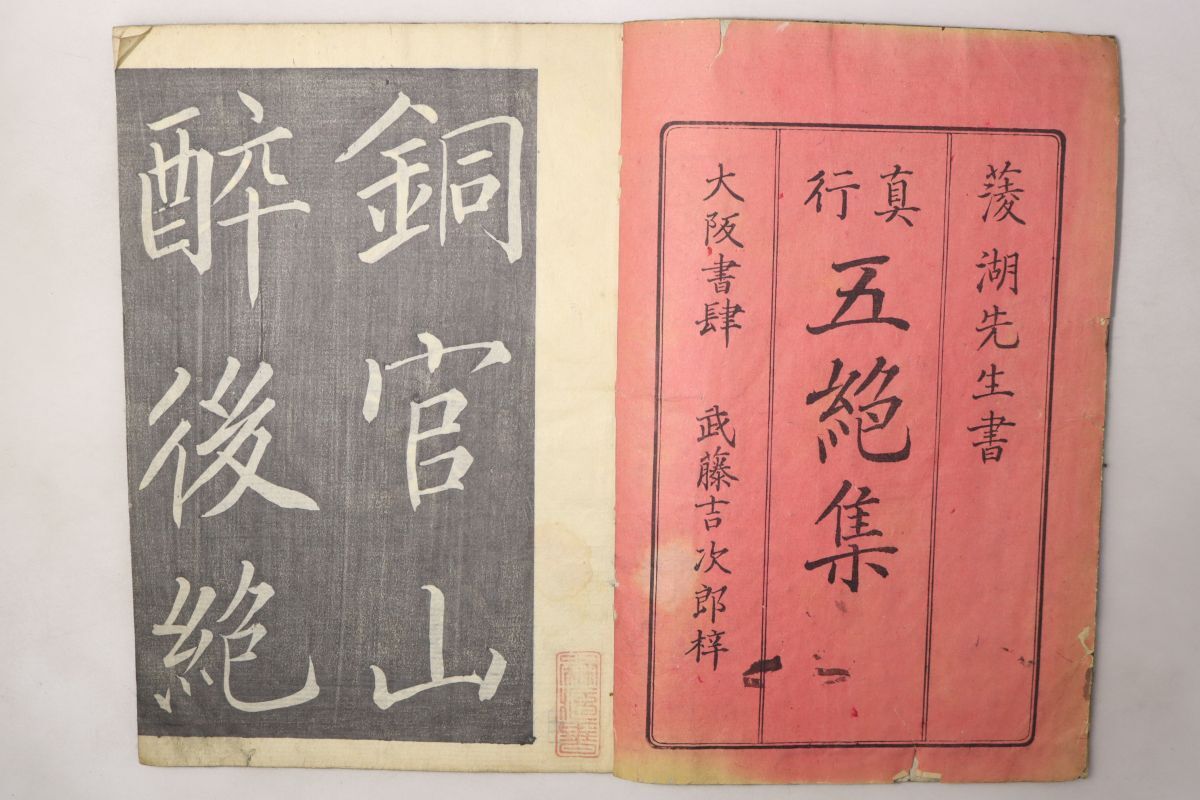 蓤湖先生書
真行
五絶集
大阪書肆 武藤吉次郎梓
銅官山
醉後絶